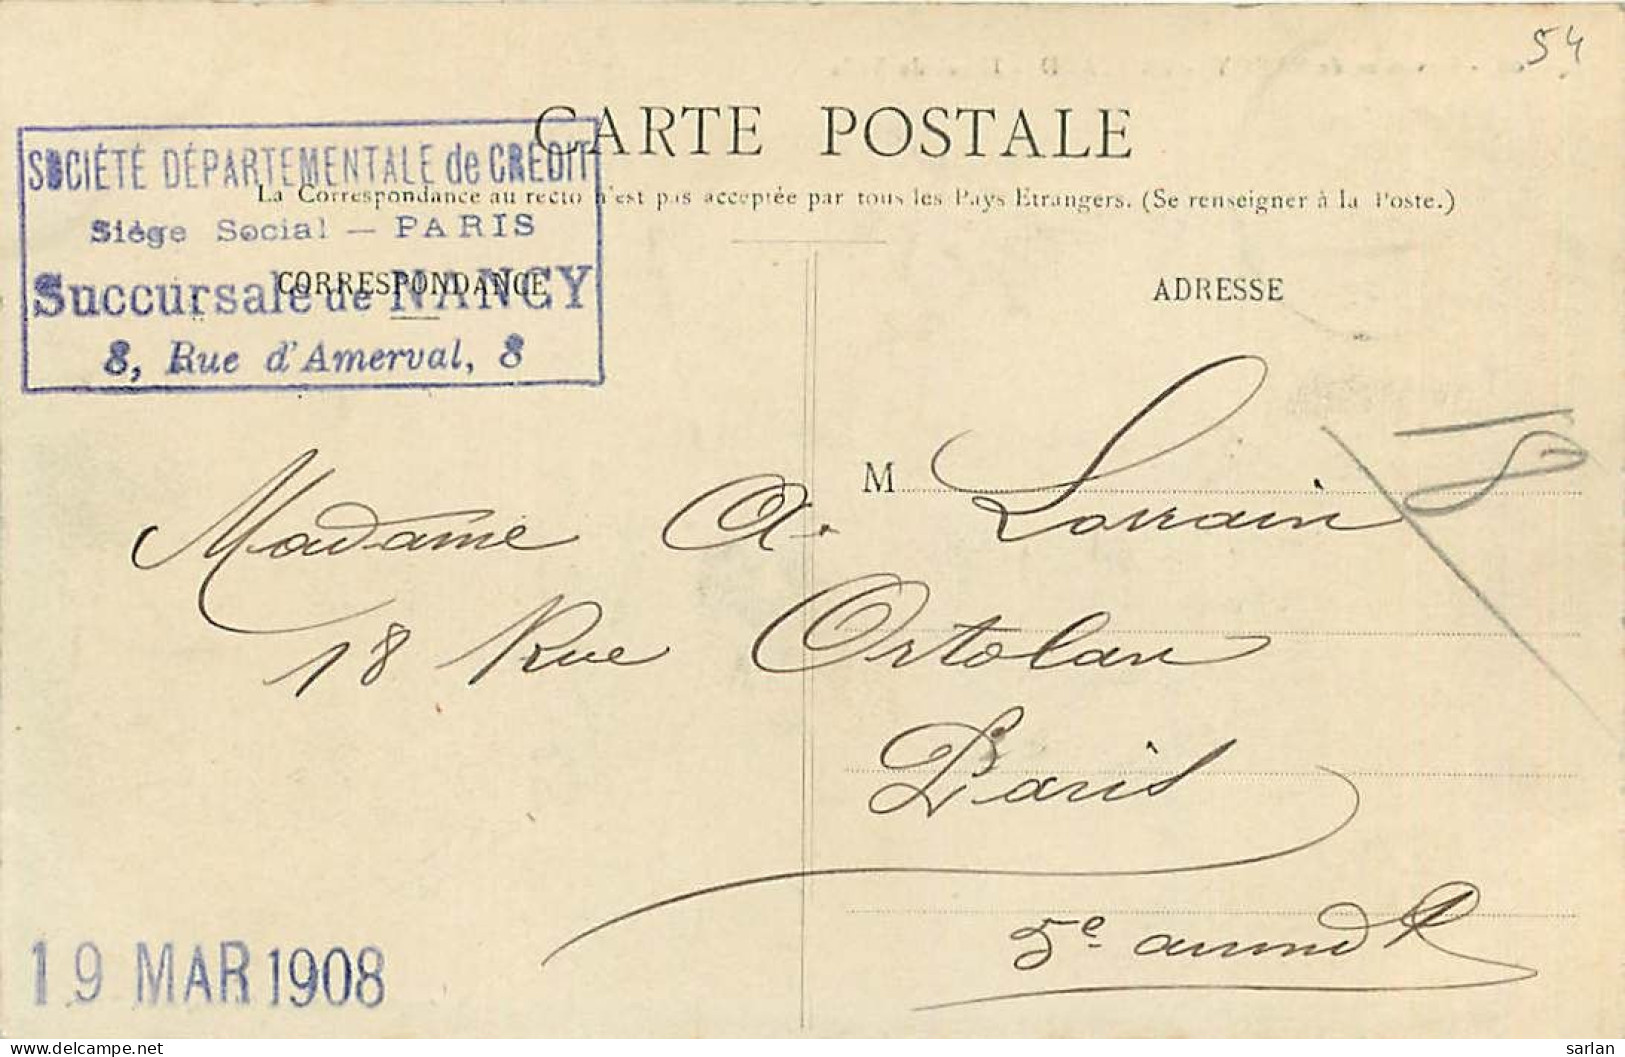 54
CARTE POSTALE
La Correspondance au recto n'est pas acceptée par tous les Pays Etrangers. (Se renseigner à la Poste.)
SOCIÉTÉ DÉPARTEMENTALE de CRÉDIT
Siège Social — PARIS
Succursale de NANCY
8, Rue d'Amerval, 8
CORRESPONDANCE
ADRESSE
M
Madame A. Lorrain
18 Rue Ortolan
Paris
5e arrondt
18
19 MAR 1908
Delcampe.com
sarlan